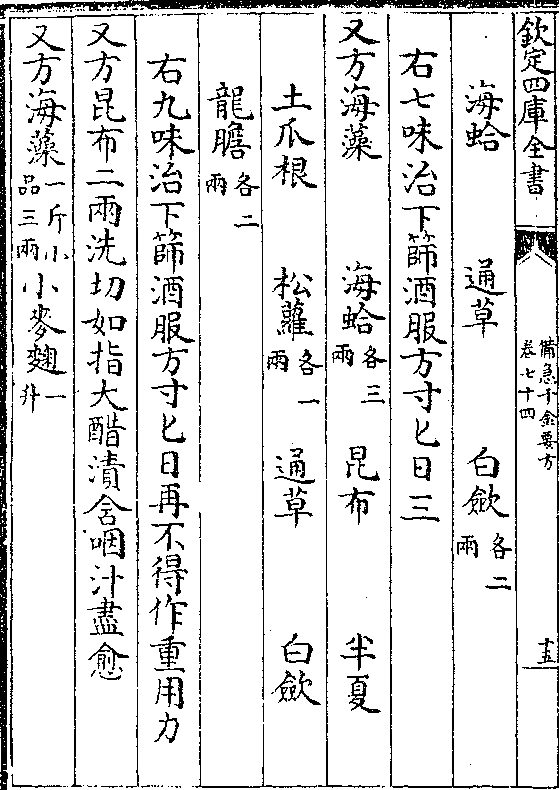 欽定四庫全書
備急千金要方
卷七十四
海蛤 通草 白歛各二兩
右七味治下篩酒服方寸匕日三
又方海藻 海蛤各三兩 昆布 半夏
土爪根 松蘿各一兩 通草 白歛
龍膽各二兩
右九味治下篩酒服方寸匕日再不得作重用力
又方昆布二兩洗切如指大醋漬含咽汁盡愈
又方海藻一斤小品三兩小麥麴一升